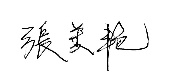 張美艳